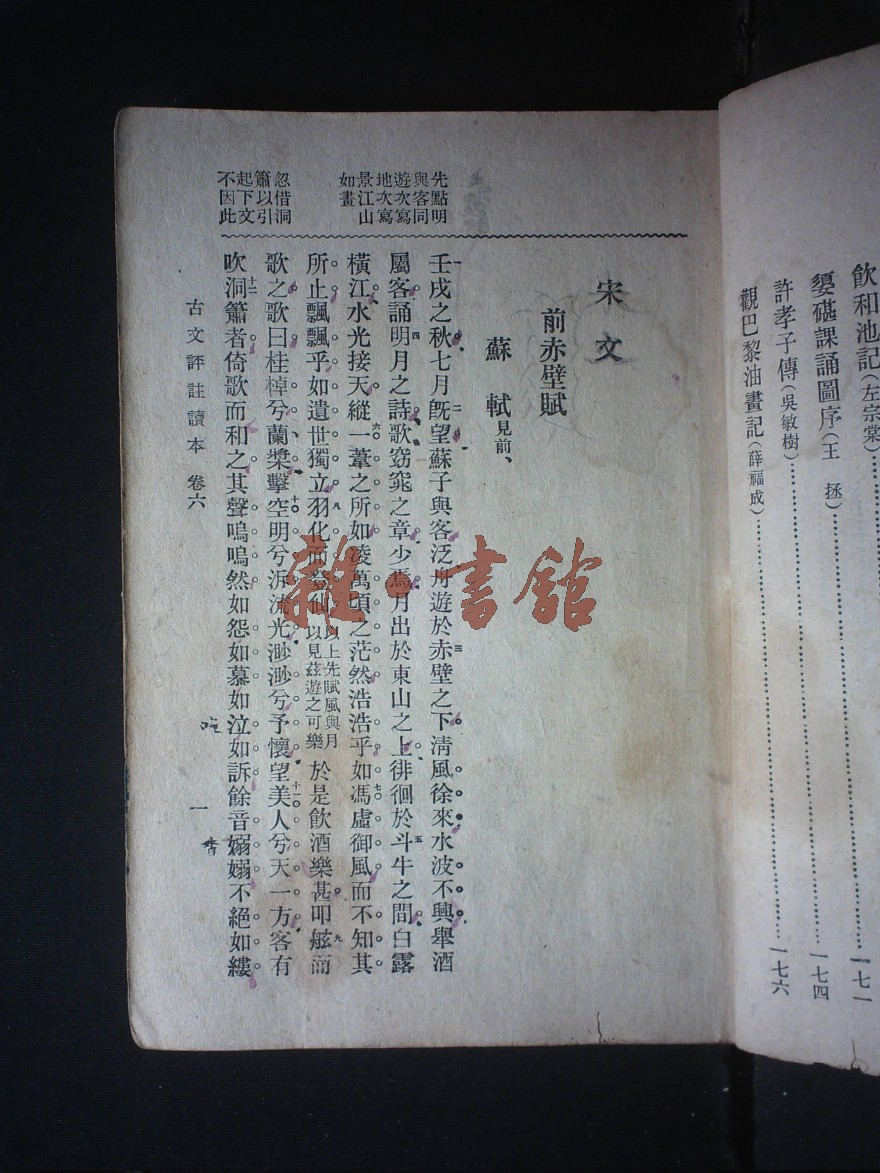 飲和池記(左宗棠)……………一七一
媭碪課誦圖序(王　拯)……………一七四
許孝子傳(吳敏樹)……………一七六
觀巴黎油畫記(薛福成)……………
先點明
與客同
遊次寫
地次寫
景江山
如畫
忽借洞
簫以引
起下文
不因此
宋文
前赤壁賦
蘇　軾見前、
壬戌之秋七月旣望蘇子與客泛舟遊於赤壁之下清風徐來水波不興舉酒
屬客誦明月之詩歌窈窕之章少焉月出於東山之上徘徊於斗牛之間白露
橫江水光接天縱一葦之所如凌萬頃之茫然浩浩乎如馮虛御風而不知其
所止飄飄乎如遺世獨立羽化而登仙以上先賦風與月以見茲遊之可樂於是飲酒樂甚叩舷而
歌之歌曰桂棹兮蘭槳擊空明兮泝流光渺渺兮予懷望美人兮天一方客有
吹洞簫者倚歌而和之其聲嗚嗚然如怨如慕如泣如訴餘音嫋嫋不絕如縷
古文評註讀本　卷六
一
雜·書館